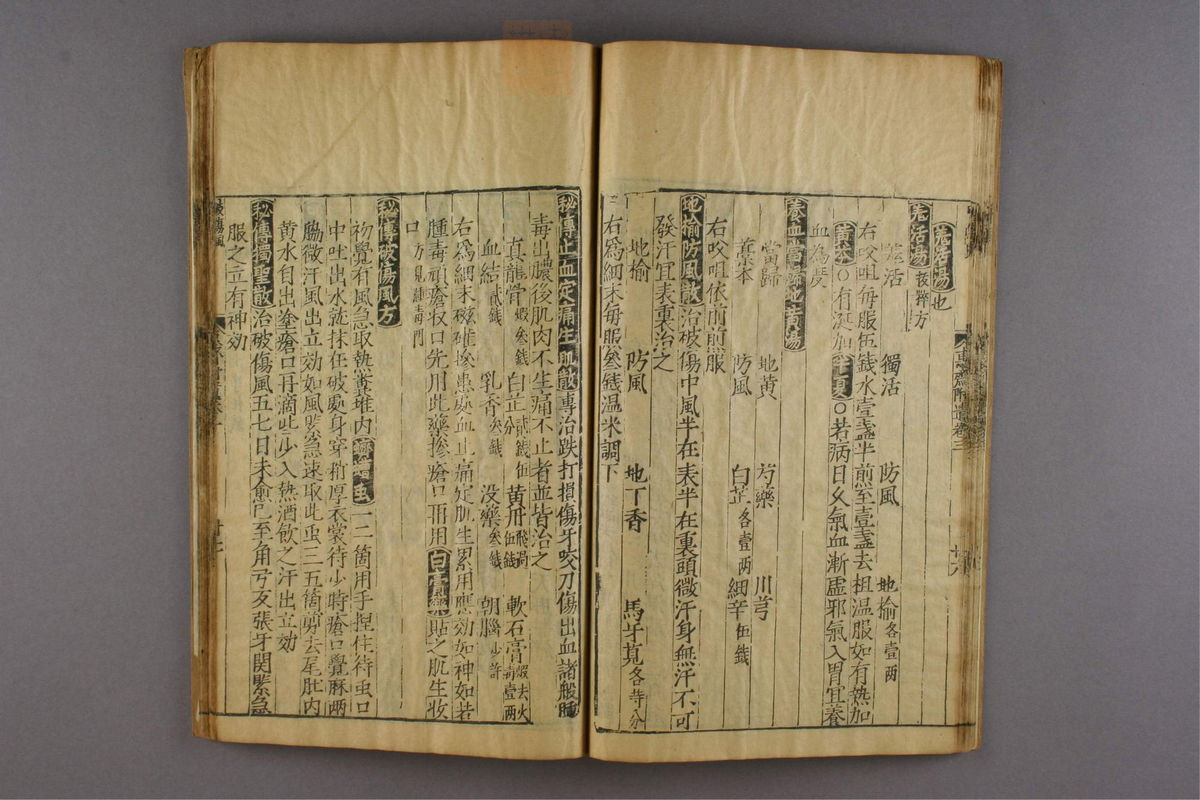 羗活湯也
羗活湯後粹方
羗活 獨活 防風 地榆各壹兩
右㕮咀每服伍錢水壹盞半煎至壹盞去柤温服如有熱加
黄芩○有涎加半夏○若病日久氣血漸虚邪氣入胃宜養
血為度
養血當歸地黄湯
當歸 地黄 芍藥 川芎
藁本 防風 白芷各壹兩 細辛伍錢
右㕮咀依前煎服
地榆防風散治破傷中風半在表半在裏頭微汗身無汗不可
發汗宜表裏治之
地榆 防風 地丁香 馬牙莧各等分
右為細末每服叁錢温米調下
秘傳止血定痛生肌散專治跌打損傷牙咬刀傷出血諸般腫
毒出膿後肌肉不生痛不止者並皆治之
真龍骨煅叁錢 白芷貳錢伍分 黄丹飛過伍錢 軟石膏煅去火毒壹兩
血結貳錢 乳香叁錢 没藥叁錢 朝腦少許
右為細末磁確摻患處血止痛定肌生累用應効如神如若
腫毒頑瘡收口先用此藥摻瘡口再用白膏藥貼之肌生收
口方見腫毒門
秘傳破傷風方
初覺有風急取熱糞堆内蠐螬虫一二箇用手捏住待虫口
中吐出水就抹在破處身穿稍厚衣裳待少時瘡口覺麻兩
脇微汗風出立効如風緊急速取此虫三五箇剪去尾肚内
黄水自出塗瘡口再滴些少入熱酒飲之汗出立効
秘傳獨聖散治破傷風五七日未愈已至角弓反張牙関緊急
服之立有神効
破傷風